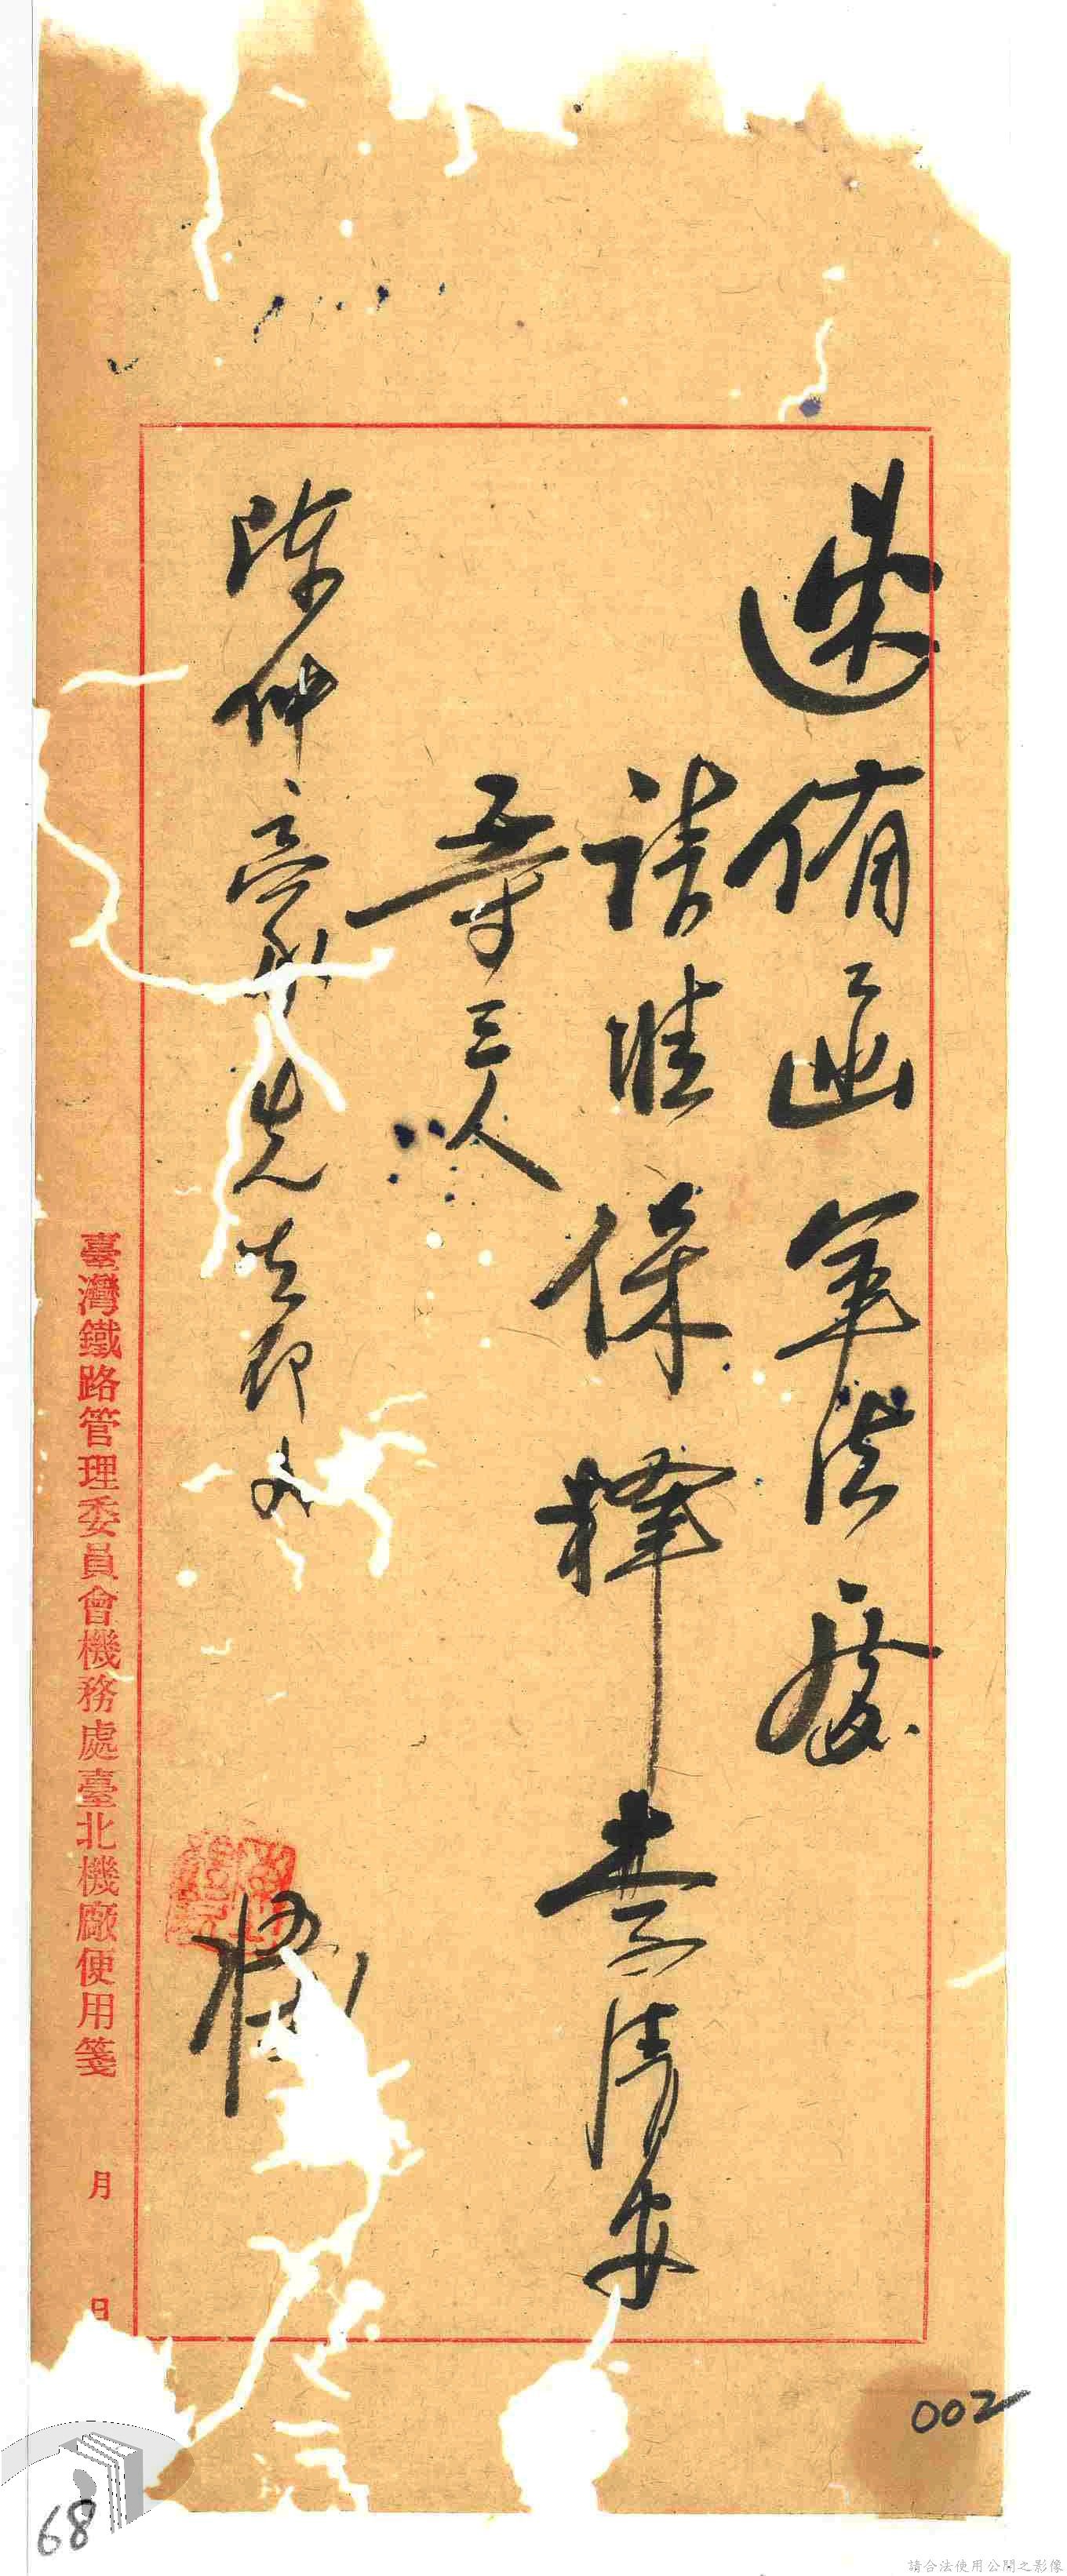 速備函軍法處
請准保釋李清安
等三人
陳仲豪先生即
臺灣鐵路管理委員會機務處臺北機廠使用箋 月 日
002
68
請合法使用公開之影像